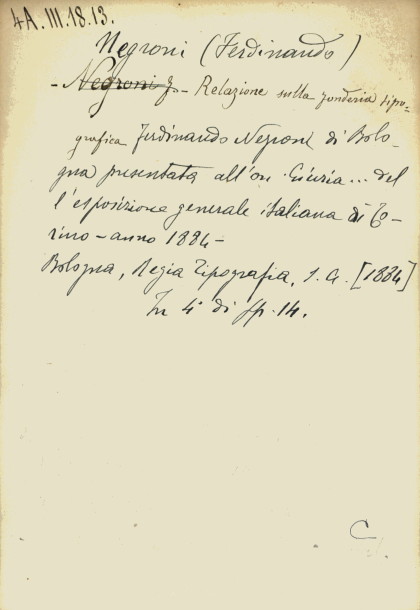 4A.III.18.13.
Negroni (Ferdinando)
- Negroni F. - Relazione sulla fonderia tipo-
grafica Ferdinando Negroni di Bolo-
gna presentata all'on. Giuria... del
l'esposizione generale italiana di To-
rino - anno 1884 -
Bologna, Regia Tipografia, s. a. [1884]
In 4° di pp. 14.
C